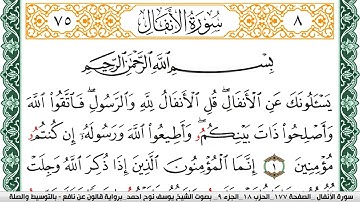 ٧٥ سُورَةُ الأَنفَالِ ٨
بِسْمِ اللَّهِ الرَّحْمَٰنِ الرَّحِيمِ
يَسْـَٔلُونَكَ عَنِ الْأَنفَالِ قُلِ الْأَنفَالُ لِلَّهِ وَالرَّسُولِ فَاتَّقُوا اللَّهَ
وَأَصْلِحُوا ذَاتَ بَيْنِكُمْ وَأَطِيعُوا اللَّهَ وَرَسُولَهُ إِن كُنتُمُ
مُّومِنِينَ ١ إِنَّمَا الْمُومِنُونَ الَّذِينَ إِذَا ذُكِرَ اللَّهُ وَجِلَتْ
سورة الأنفال - الصفحة ١٧٧ الحزب ١٨ الجزء ٩ - بصوت الشيخ يوسف نوح احمد - برواية قالون عن نافع - بالتوسيط والصلة